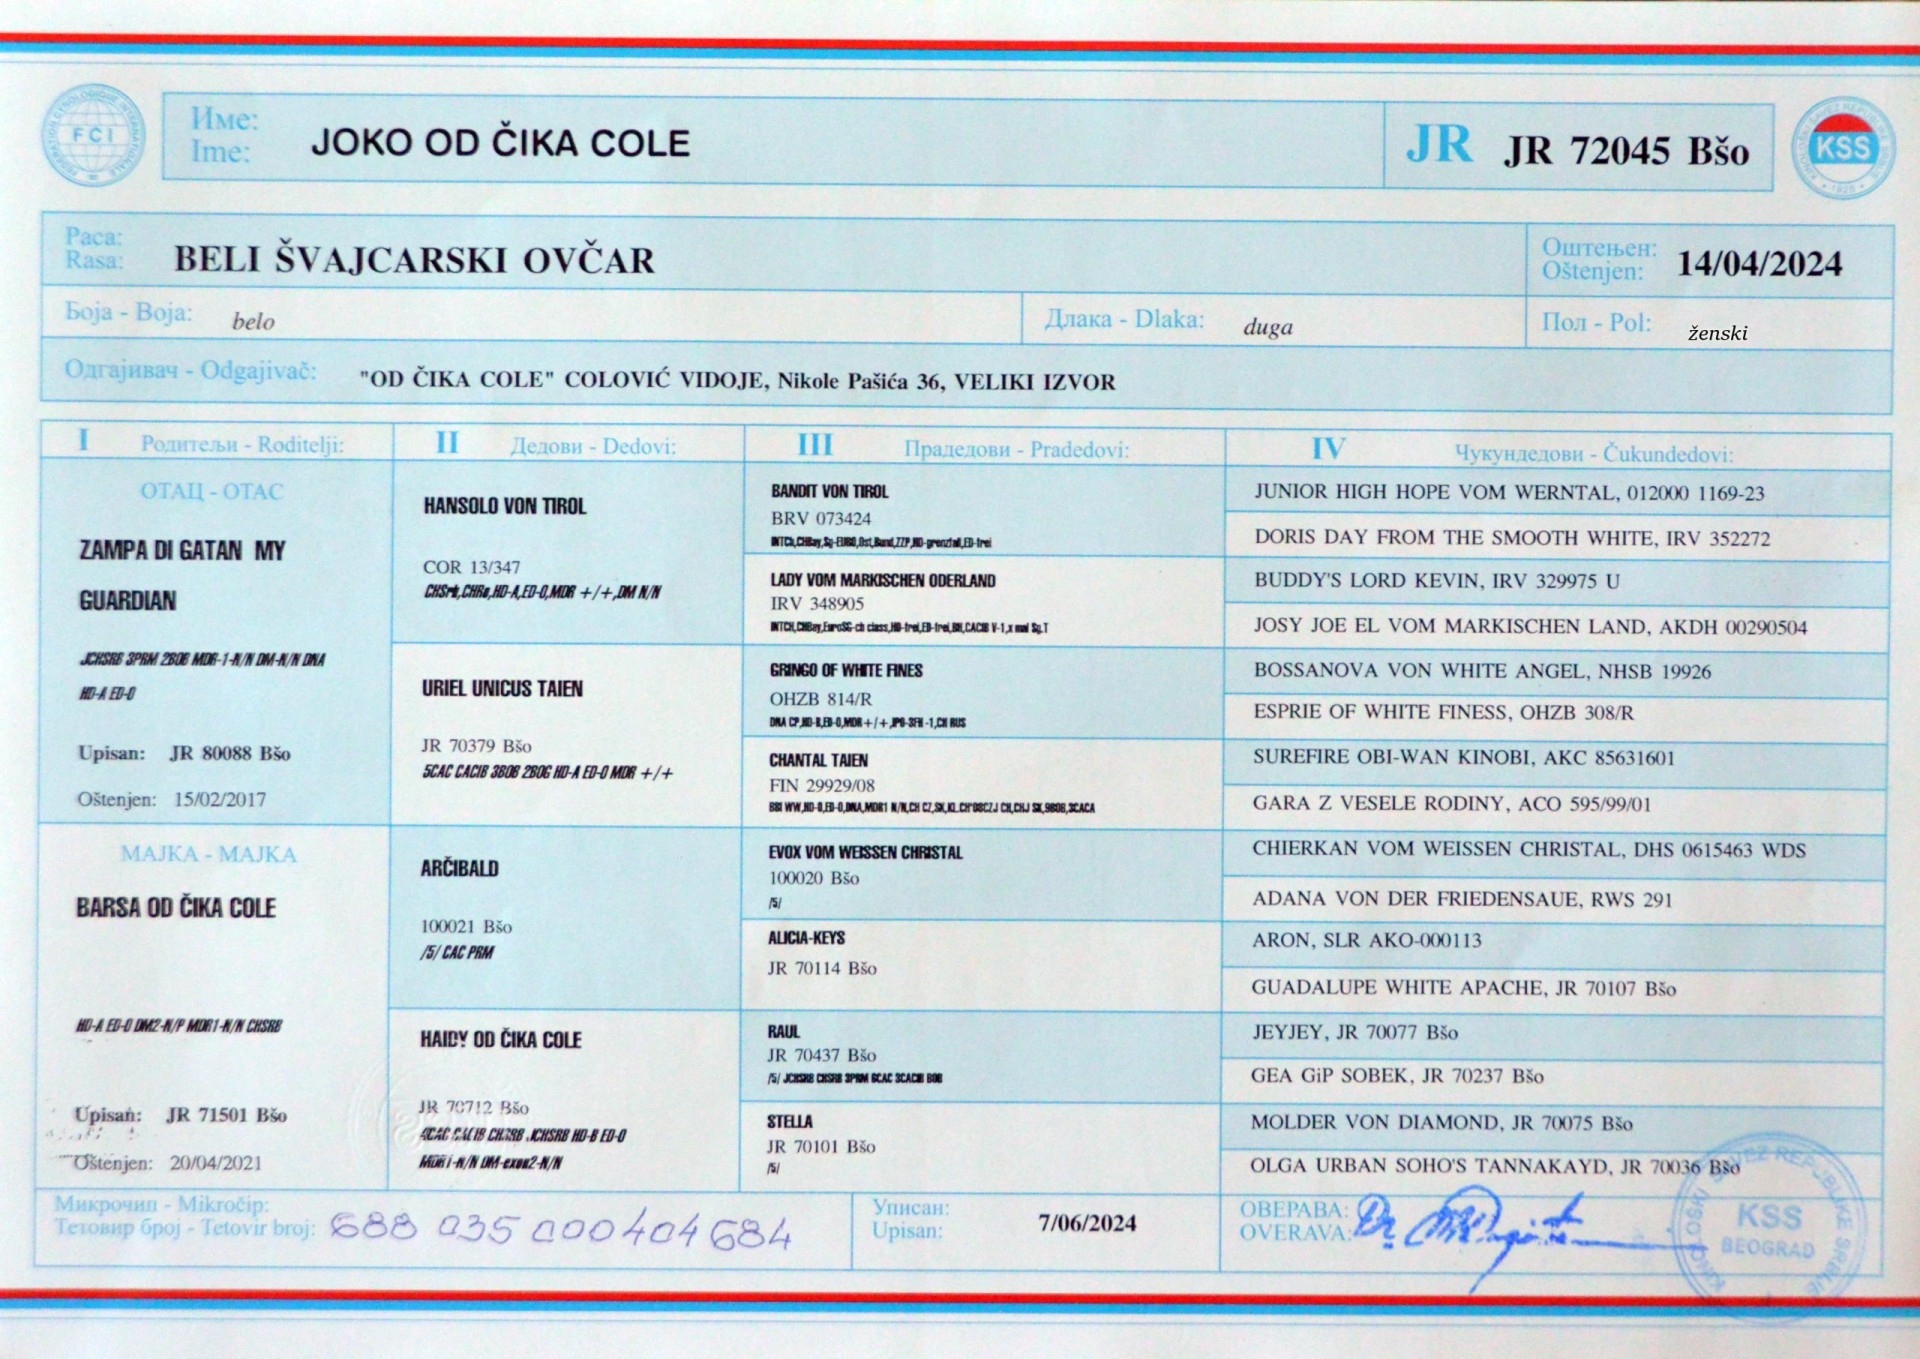 FCI
Име:
Ime:
JOKO OD ČIKA COLE
JR
JR 72045 Bšo
KSS
Раса:
Rasa:
BELI ŠVAJCARSKI OVČAR
Оштењен:
Oštenjen:
14/04/2024
Боја - Boja:
belo
Длака - Dlaka:
duga
Пол - Pol:
ženski
Одгајивач - Odgajivač:
"OD ČIKA COLE" COLOVIĆ VIDOJE, Nikole Pašića 36, VELIKI IZVOR
I Родитељи - Roditelji:
II Дедови - Dedovi:
III Прадедови - Pradedovi:
IV Чукундедови - Čukundedovi:
ОТАЦ - OTAC
ZAMPA DI GATAN MY
GUARDIAN
JCHSRB 3PRM 2BOB MDR-1-N/N DM-N/N DNA
HD-A ED-0
Upisan: JR 80088 Bšo
Oštenjen: 15/02/2017
МАЈКА - MAJKA
BARSA OD ČIKA COLE
HD-A ED-0 DM2-N/P MDR1-N/N CHSRB
Upisan: JR 71501 Bšo
Oštenjen: 20/04/2021
HANSOLO VON TIROL
COR 13/347
HD-A,ED-0,MDR +/+,DM N/N
URIEL UNICUS TAIEN
JR 70379 Bšo
5CAC CACIB 3BOB 2BOG HD-A ED-0 MDR +/+
ARČIBALD
100021 Bšo
/5/ CAC PRM
HAIDY OD ČIKA COLE
JR 70712 Bšo
4CAC CACIB CHSRB JCHSRB HD-B ED-0
MDR1-N/N DM-exon2-N/N
BANDIT VON TIROL
BRV 073424
LADY VOM MARKISCHEN ODERLAND
IRV 348905
GRINGO OF WHITE FINES
OHZB 814/R
CHANTAL TAIEN
FIN 29929/08
EVOX VOM WEISSEN CHRISTAL
100020 Bšo
/5/
ALICIA-KEYS
JR 70114 Bšo
RAUL
JR 70437 Bšo
/5/ JCHSRB CHSRB 3PRM 6CAC 3CACIB BOB
STELLA
JR 70101 Bšo
/5/
JUNIOR HIGH HOPE VOM WERNTAL, 012000 1169-23
DORIS DAY FROM THE SMOOTH WHITE, IRV 352272
BUDDY'S LORD KEVIN, IRV 329975 U
JOSY JOE EL VOM MARKISCHEN LAND, AKDH 00290504
BOSSANOVA VON WHITE ANGEL, NHSB 19926
ESPRIE OF WHITE FINESS, OHZB 308/R
SUREFIRE OBI-WAN KINOBI, AKC 85631601
GARA Z VESELE RODINY, ACO 595/99/01
CHIERKAN VOM WEISSEN CHRISTAL, DHS 0615463 WDS
ADANA VON DER FRIEDENSAUE, RWS 291
ARON, SLR AKO-000113
GUADALUPE WHITE APACHE, JR 70107 Bšo
JEYJEY, JR 70077 Bšo
GEA GiP SOBEK, JR 70237 Bšo
MOLDER VON DIAMOND, JR 70075 Bšo
OLGA URBAN SOHO'S TANNAKAYD, JR 70036 Bšo
Микрочип - Mikročip:
Тетовир број - Tetovir broj:
688 035 000404684
Уписан:
Upisan:
7/06/2024
ОВЕРАВА:
OVERAVA:
Dr
KINOLOŠKI SAVEZ REPUBLIKE SRBIJE
KSS
BEOGRAD